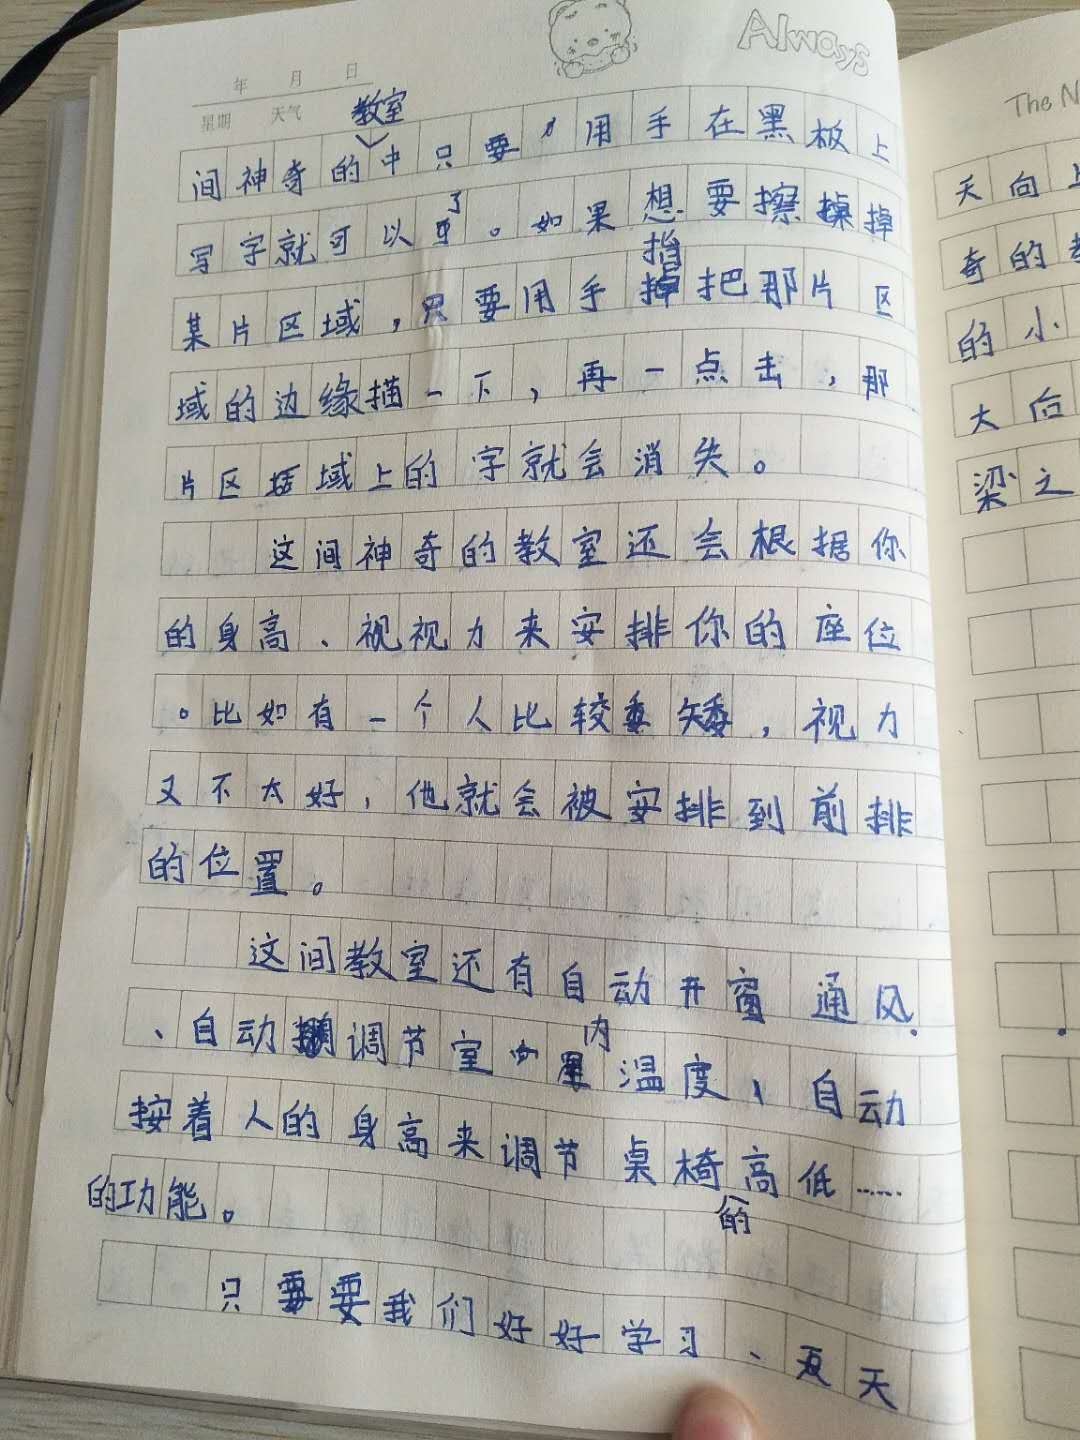 Always
年 月 日
星期 天气
The N
间神奇的教室中只要，用手在黑板上
写字就可以了。如果想要擦掉
某片区域，只要用手指把那片区
域的边缘描一下，再一点击，那
片区域上的字就会消失。
这间神奇的教室还会根据你
的身高、视视力来安排你的座位
。比如有一个人比较矮，视力
又不太好，他就会被安排到前排
的位置。
这间教室还有自动开窗通风
、自动调节室内温度、自动
按着人的身高来调节桌椅的高低……
的功能。
只要要我们好好学习、天天
天向上
奇的
的小
大后
梁之